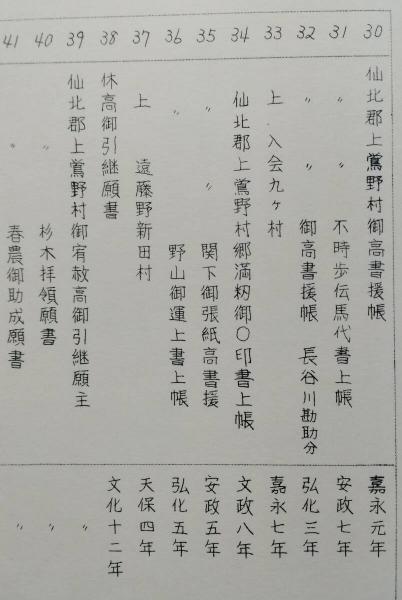 30 仙北郡上鶯野村御高書援帳 嘉永元年
31 〃 不時歩伝馬代書上帳 安政七年
32 〃 〃 御高書援帳 長谷川勘助分 弘化三年
33 上.入会九ヶ村 嘉永七年
34 仙北郡上鶯野村郷満籾御〇印書上帳 文政八年
35 〃 〃 関下御張紙高書援 安政五年
36 〃 野山御運上書上帳 弘化五年
37 上 遠藤野新田村 天保四年
38 休高御引継願書 文化十二年
39 仙北郡上鶯野村御宥赦高御引継願主 〃
40 〃 杉木拝領願書 〃
41 〃 春農御助成願書 〃